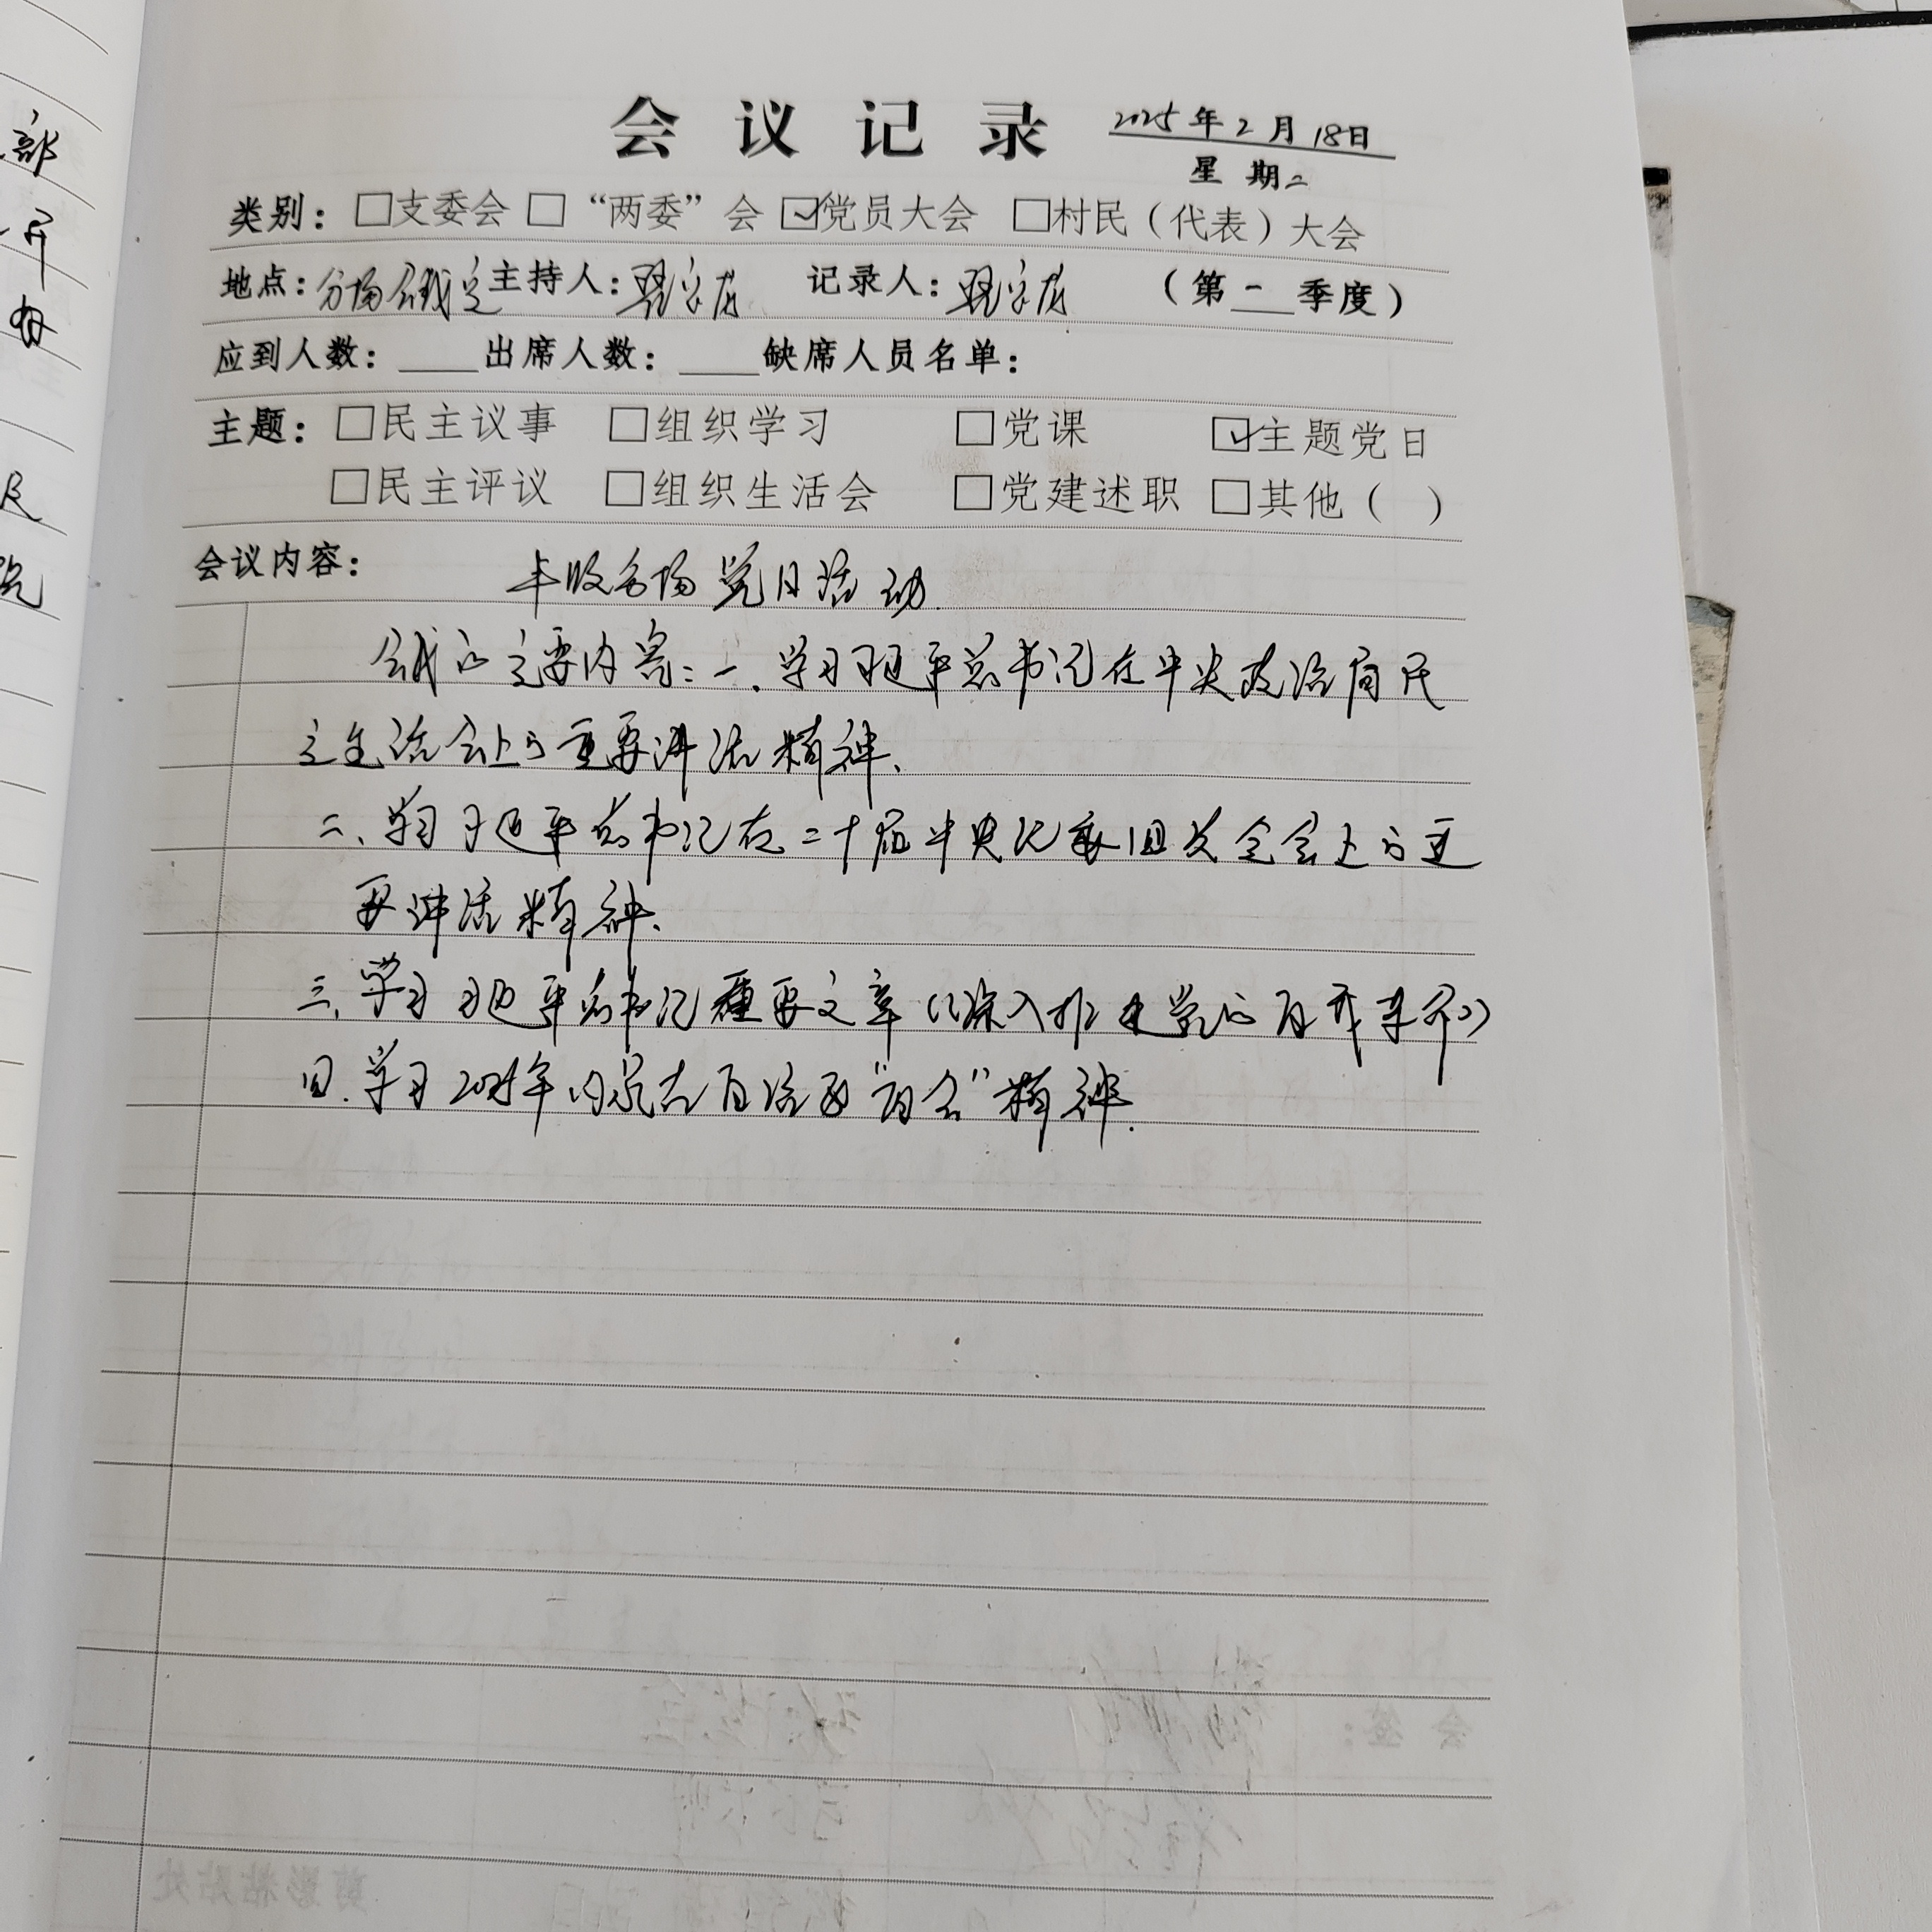 会议记录 2025年2月18日
星期二
类别：□支委会 □“两委”会 ☑党员大会 □村民（代表）大会
地点：分场会议室 主持人： 记录人： （第一季度）
应到人数：____出席人数：____缺席人员名单：
主题：□民主议事 □组织学习 □党课 ☑主题党日
□民主评议 □组织生活会 □党建述职 □其他（ ）
会议内容： 丰收分场党日活动
会议的主要内容：一、学习习近平总书记在中央政治局民
主生活会上的重要讲话精神、
二、学习习近平总书记在二十届中央纪委四次全会上的重
要讲话精神、
三、学习习近平总书记重要文章《深入推进党的自我革命》
四.学习2025年内蒙古自治区“两会”精神.
部
会签：
剪影粘贴处